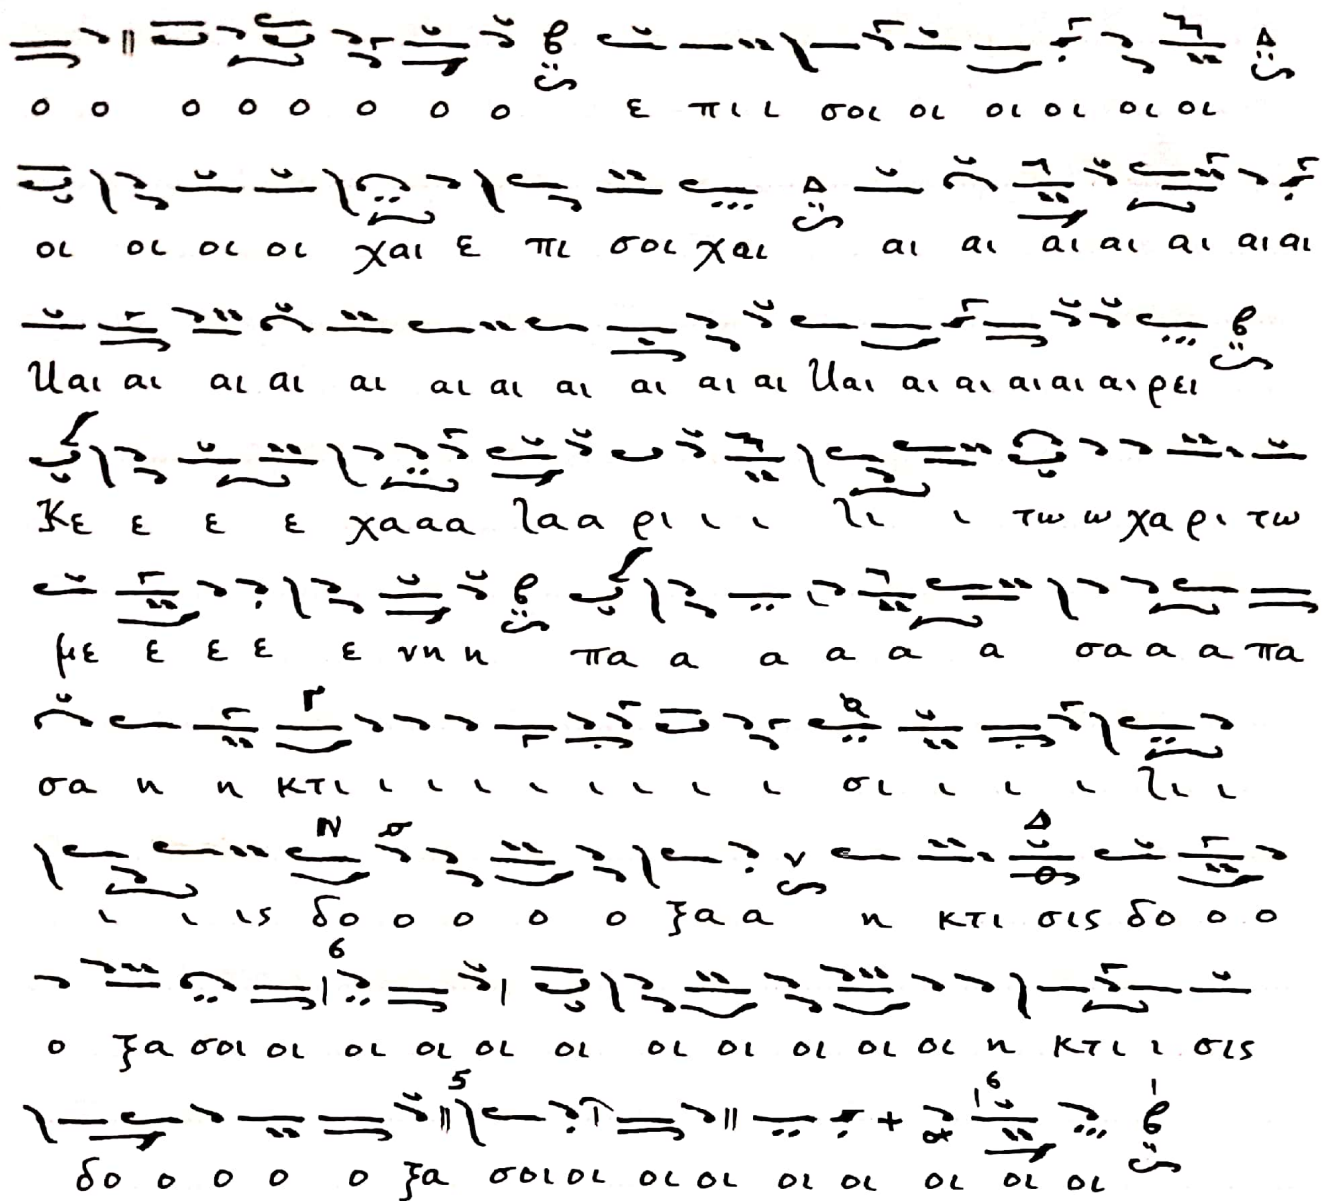 ο ο ο ο ο ο ο ο ε πι ι σοι οι οι οι οι οι
οι οι οι οι χαι ε πι σοι χαι αι αι αι αι αι αι αι
Ναι αι αι αι αι αι αι αι αι αι αι Ναι αι αι αι αι αι ρει
Κε ε ε ε χα α α λα α ρι ι ι λι ι τω ω χα ρι τω
με ε ε ε ε νη η πα α α α α α σα α α πα
σα η η κτι ι ι ι ι ι ι ι ι σι ι ι ι λι ι
ι ι ις δο ο ο ο ο ξα α η κτι σις δο ο ο
ο ξα σοι οι οι οι οι οι οι οι οι οι οι η κτι ι σις
δο ο ο ο ο ξα σοι οι οι οι οι οι οι οι οι οι